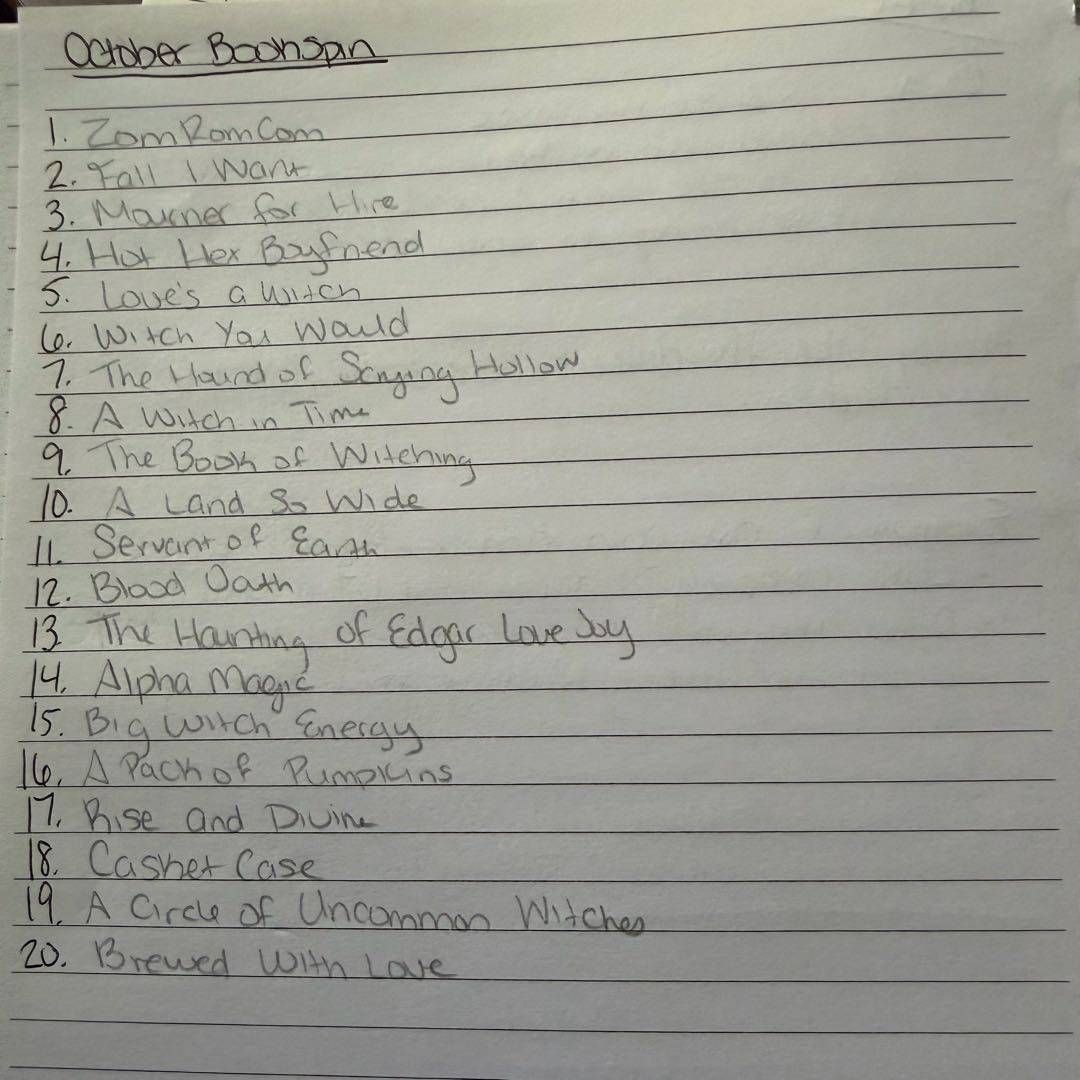 October Bookspin
1. ZomRomCom
2. Fall I Want
3. Mourner for Hire
4. Hot Hex Boyfriend
5. Love's a Witch
6. Witch You Would
7. The Hound of Scrying Hollow
8. A Witch in Time
9. The Book of Witching
10. A Land So Wide
11. Servant of Earth
12. Blood Oath
13 The Haunting of Edgar Love Joy
14. Alpha Magic
15. Big Witch Energy
16. A Pack of Pumpkins
17. Rise and Divine
18. Casket Case
19. A Circle of Uncommon Witches
20. Brewed With Love